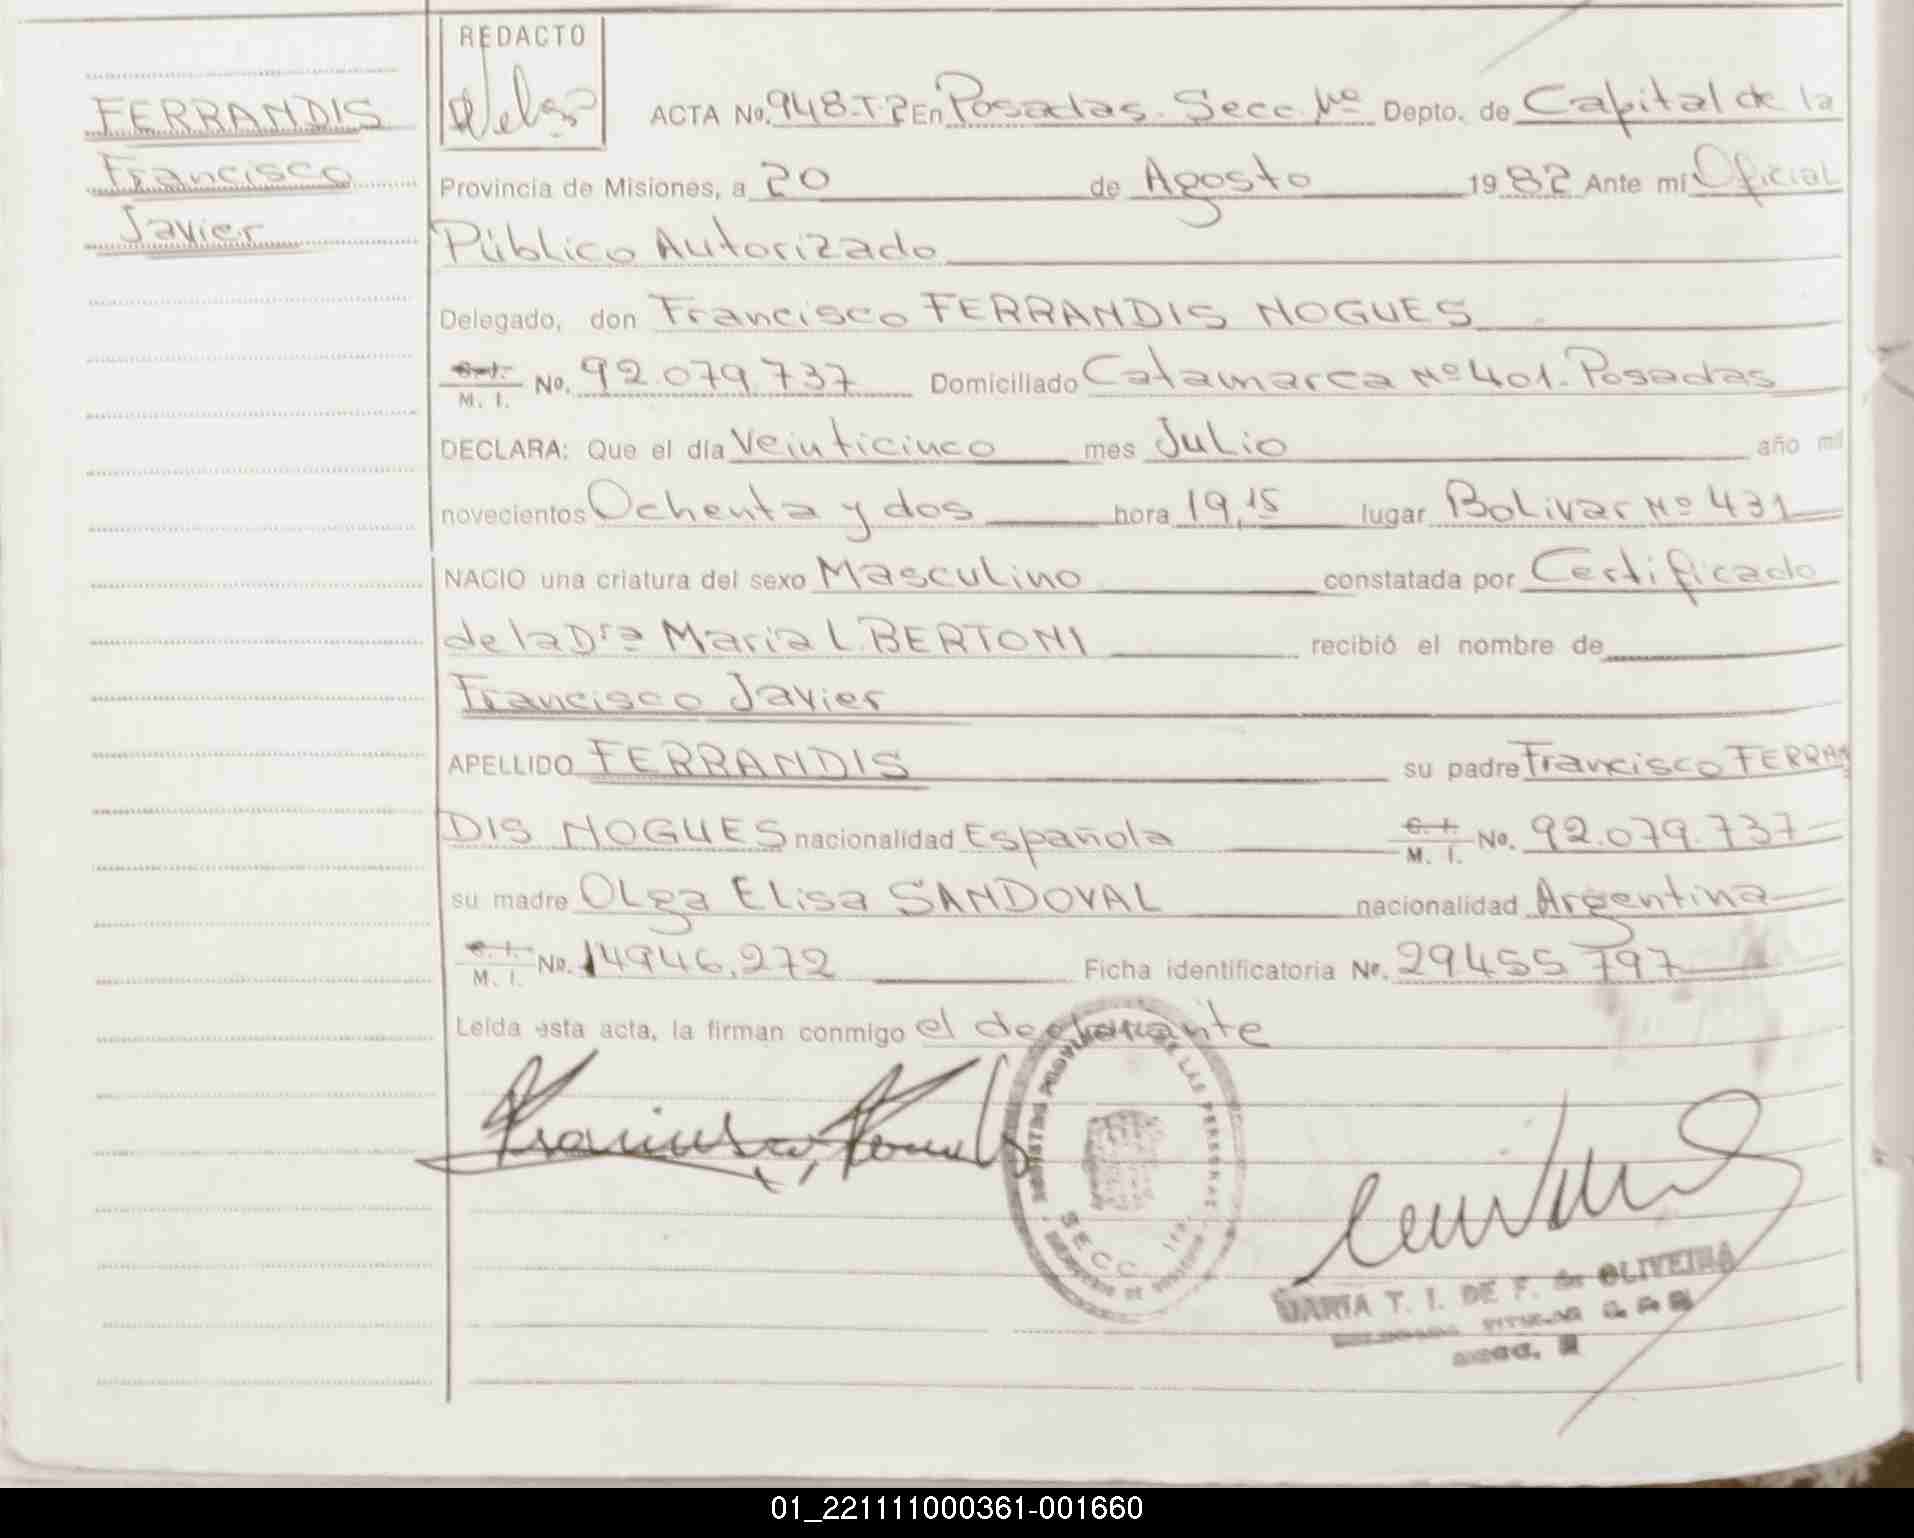 REDACTO
FERRANDIS
Francisco
Javier
ACTA No. 948-T-2 En Posadas. Secc. Nº Depto. de Capital de la
Provincia de Misiones, a 20 de Agosto 1982 Ante mí Oficial
Público Autorizado
Delegado, don Francisco FERRANDIS NOGUES
C.I. M. I. No. 92.079.737 Domiciliado Catamarca Nº 401. Posadas
DECLARA: Que el día Veinticinco mes Julio año mil
novecientos Ochenta y dos hora 19,15 lugar Bolivar Nº 431
NACIO una criatura del sexo Masculino constatada por Certificado
de la Drª Maria L. BERTONI recibió el nombre de
Francisco Javier
APELLIDO FERRANDIS su padre Francisco FERRAN
DIS NOGUES nacionalidad Española C.I. M. I. No. 92.079.737
su madre Olga Elisa SANDOVAL nacionalidad Argentina
C.I. M. I. No. 14946.272 Ficha identificatoria No. 29455797
Leída esta acta, la firman conmigo el declarante
REGISTRO PROVINCIAL DE LAS PERSONAS
SECC. 1ra.
MARIA T. I. DE F. de OLIVEIRA
01_221111000361-001660